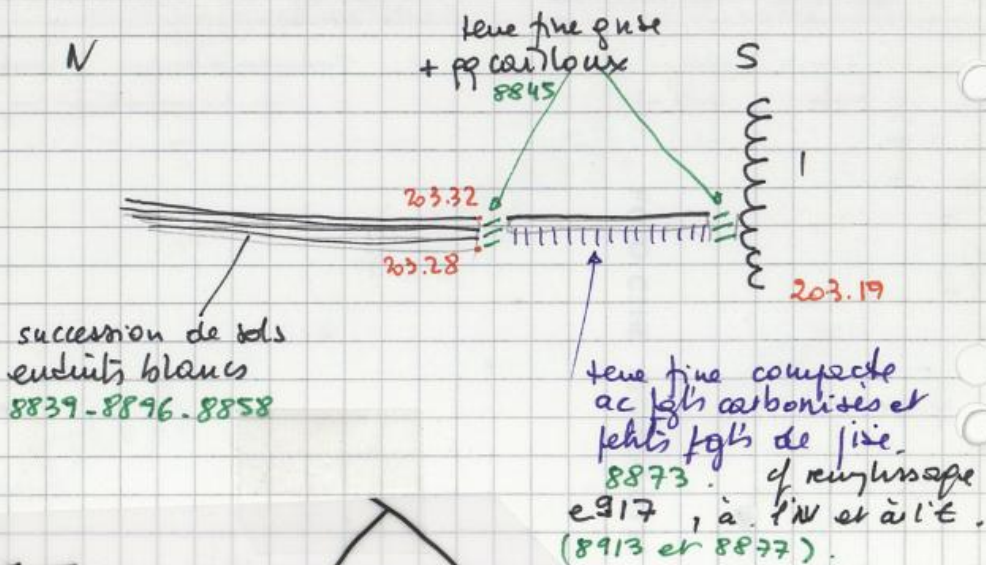 N
terre fine grise
+ qq cailloux
8845
S
1
203.32
203.28
203.19
succession de sols
enduits blancs
8839-8896-8858
terre fine compacte
ac fgts carbonisés et
petits fgts de
8873. cf remplissage
e917, à l'N et à l'E.
(8913 et 8877).